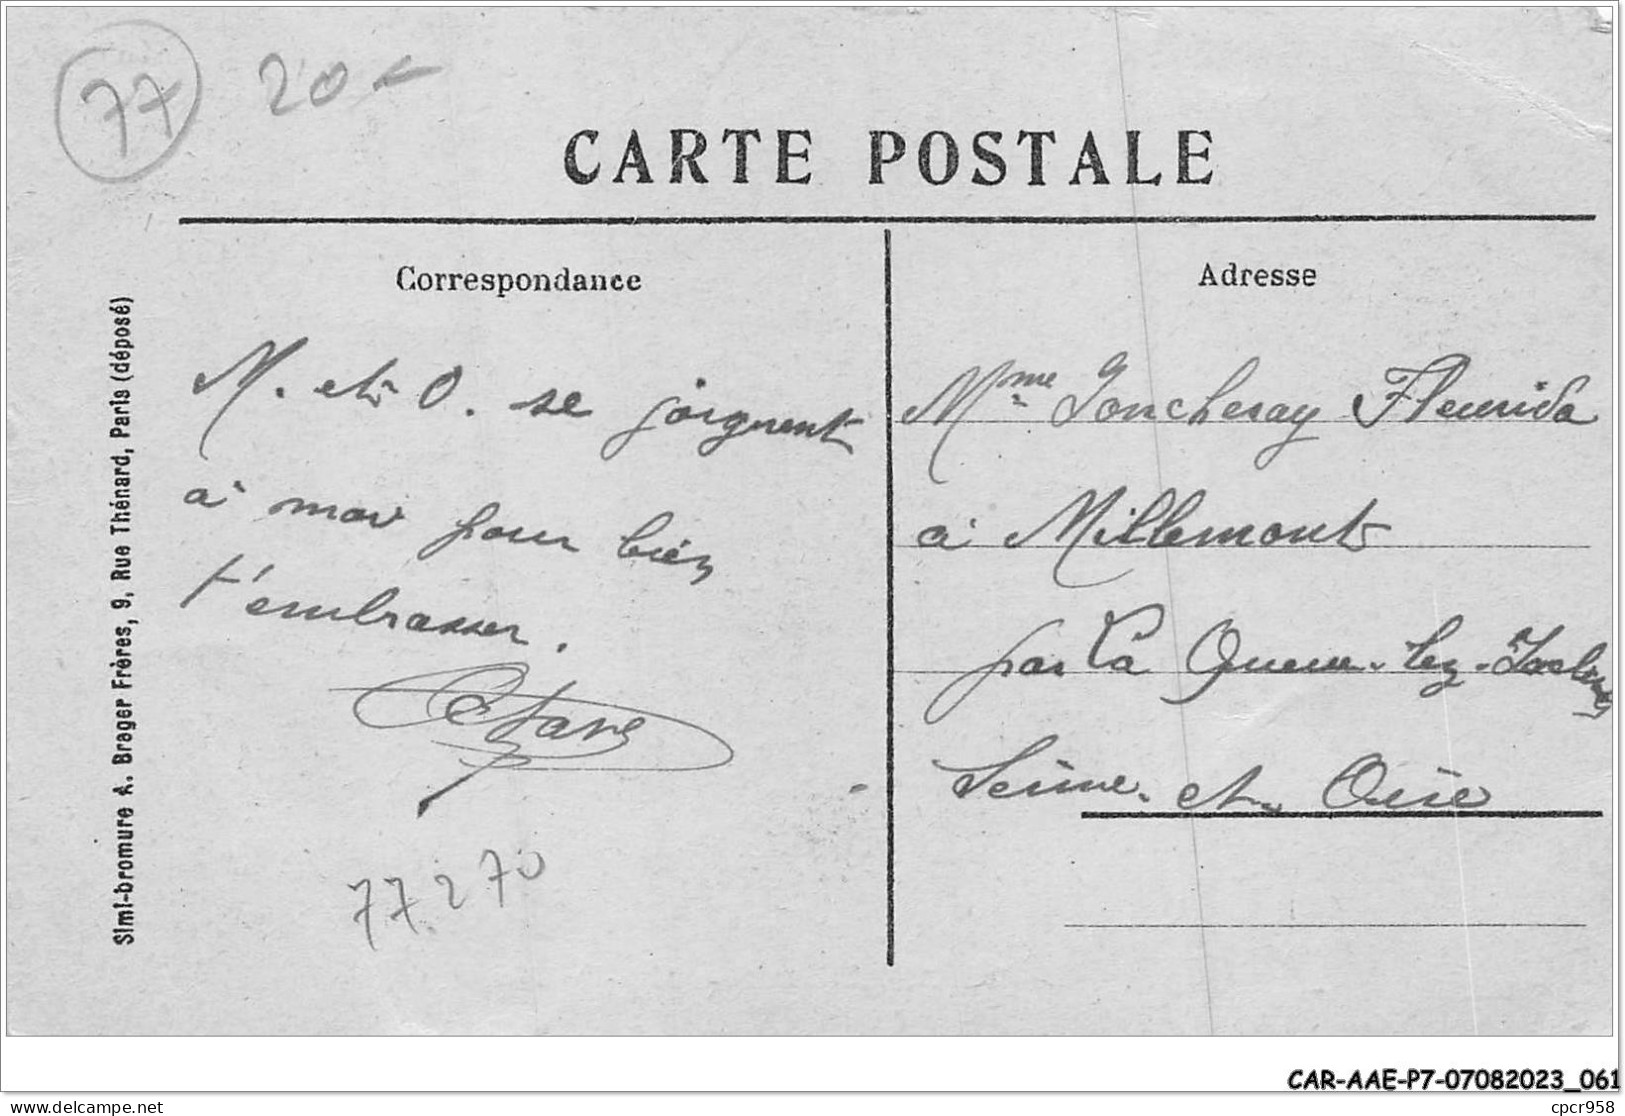 77 20
CARTE POSTALE
Correspondance
Adresse
M. et O. se joignent
à moi pour bien
t'embrasser.
Octave
77270
Mme Joncheray Fleurida
à Millemont
par La Queue-lez-Yvelines
Seine-et-Oise
Simi-bromure A. Brager Frères, 9, Rue Thénard, Paris (déposé)
CAR-AAE-P7-07082023_061
delcampe.net
cpcr958